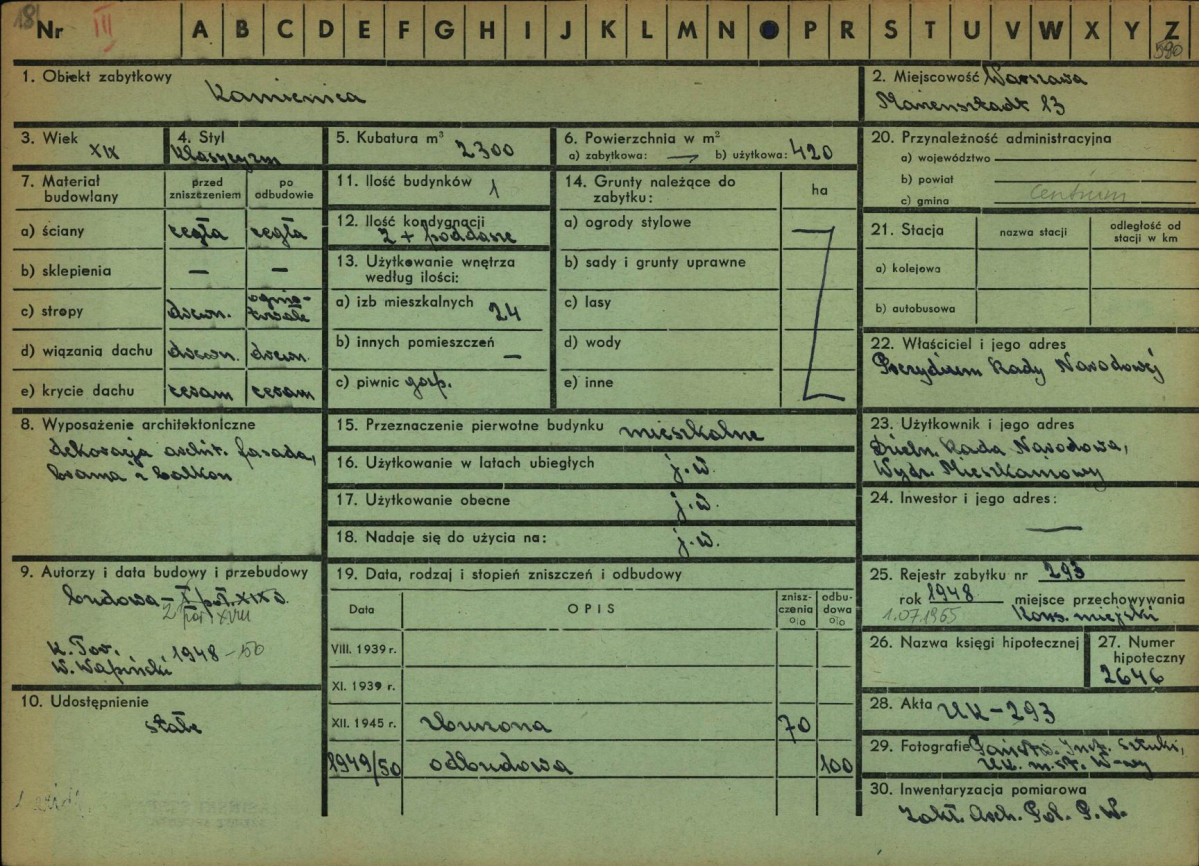 18
Nr III A B C D E F G H I J K L M N P R S T U V W X Y Z
590
1. Obiekt zabytkowy
Kamienica
2. Miejscowość Warszawa
Mariensztadt 23
3. Wiek
XIX
4. Styl
Klasycyzm
5. Kubatura m³
2300
6. Powierzchnia w m²
a) zabytkowa: — b) użytkowa: 420
7. Materiał budowlany
przed zniszczeniem
po odbudowie
a) ściany cegła cegła
b) sklepienia — —
c) stropy drewn. ognio-trwałe
d) wiązania dachu drewn. drewn.
e) krycie dachu ceram ceram
8. Wyposażenie architektoniczne
dekoracja archit. fasada,
brama i balkon
9. Autorzy i data budowy i przebudowy
budowa – I poł. XIX w.
2 poł. XVIII
K. Tor.
W. Wapiński 1948 – 50
10. Udostępnienie
stałe
11. Ilość budynków 1
12. Ilość kondygnacji
2 + poddasze
13. Użytkowanie wnętrza
według ilości:
a) izb mieszkalnych 24
b) innych pomieszczeń —
c) piwnic gosp.
14. Grunty należące do
zabytku:
ha
a) ogrody stylowe
b) sady i grunty uprawne
c) lasy
d) wody
e) inne
15. Przeznaczenie pierwotne budynku mieszkalne
16. Użytkowanie w latach ubiegłych j.w.
17. Użytkowanie obecne j.w.
18. Nadaje się do użycia na: j.w.
19. Data, rodzaj i stopień zniszczeń i odbudowy
Data OPIS zniszczenia % odbudowa %
VIII. 1939 r.
XI. 1939 r.
XII. 1945 r. zburzona 70
1949/50 odbudowa 100
20. Przynależność administracyjna
a) województwo
b) powiat
c) gmina Centrum
21. Stacja nazwa stacji odległość od stacji w km
a) kolejowa
b) autobusowa
22. Właściciel i jego adres
Prezydium Rady Narodowej
23. Użytkownik i jego adres
Dzieln. Rada Narodowa,
Wydz. Mieszkaniowy
24. Inwestor i jego adres:
—
25. Rejestr zabytku nr 293
rok 1948 miejsce przechowywania
1.07.1965 Kons. miejski
26. Nazwa księgi hipotecznej
27. Numer
hipoteczny
2646
28. Akta UK–293
29. Fotografie Państw. Inst. Sztuki,
UK. m. st. W-wy
30. Inwentaryzacja pomiarowa
Zakł. Arch. Pol. P.W.